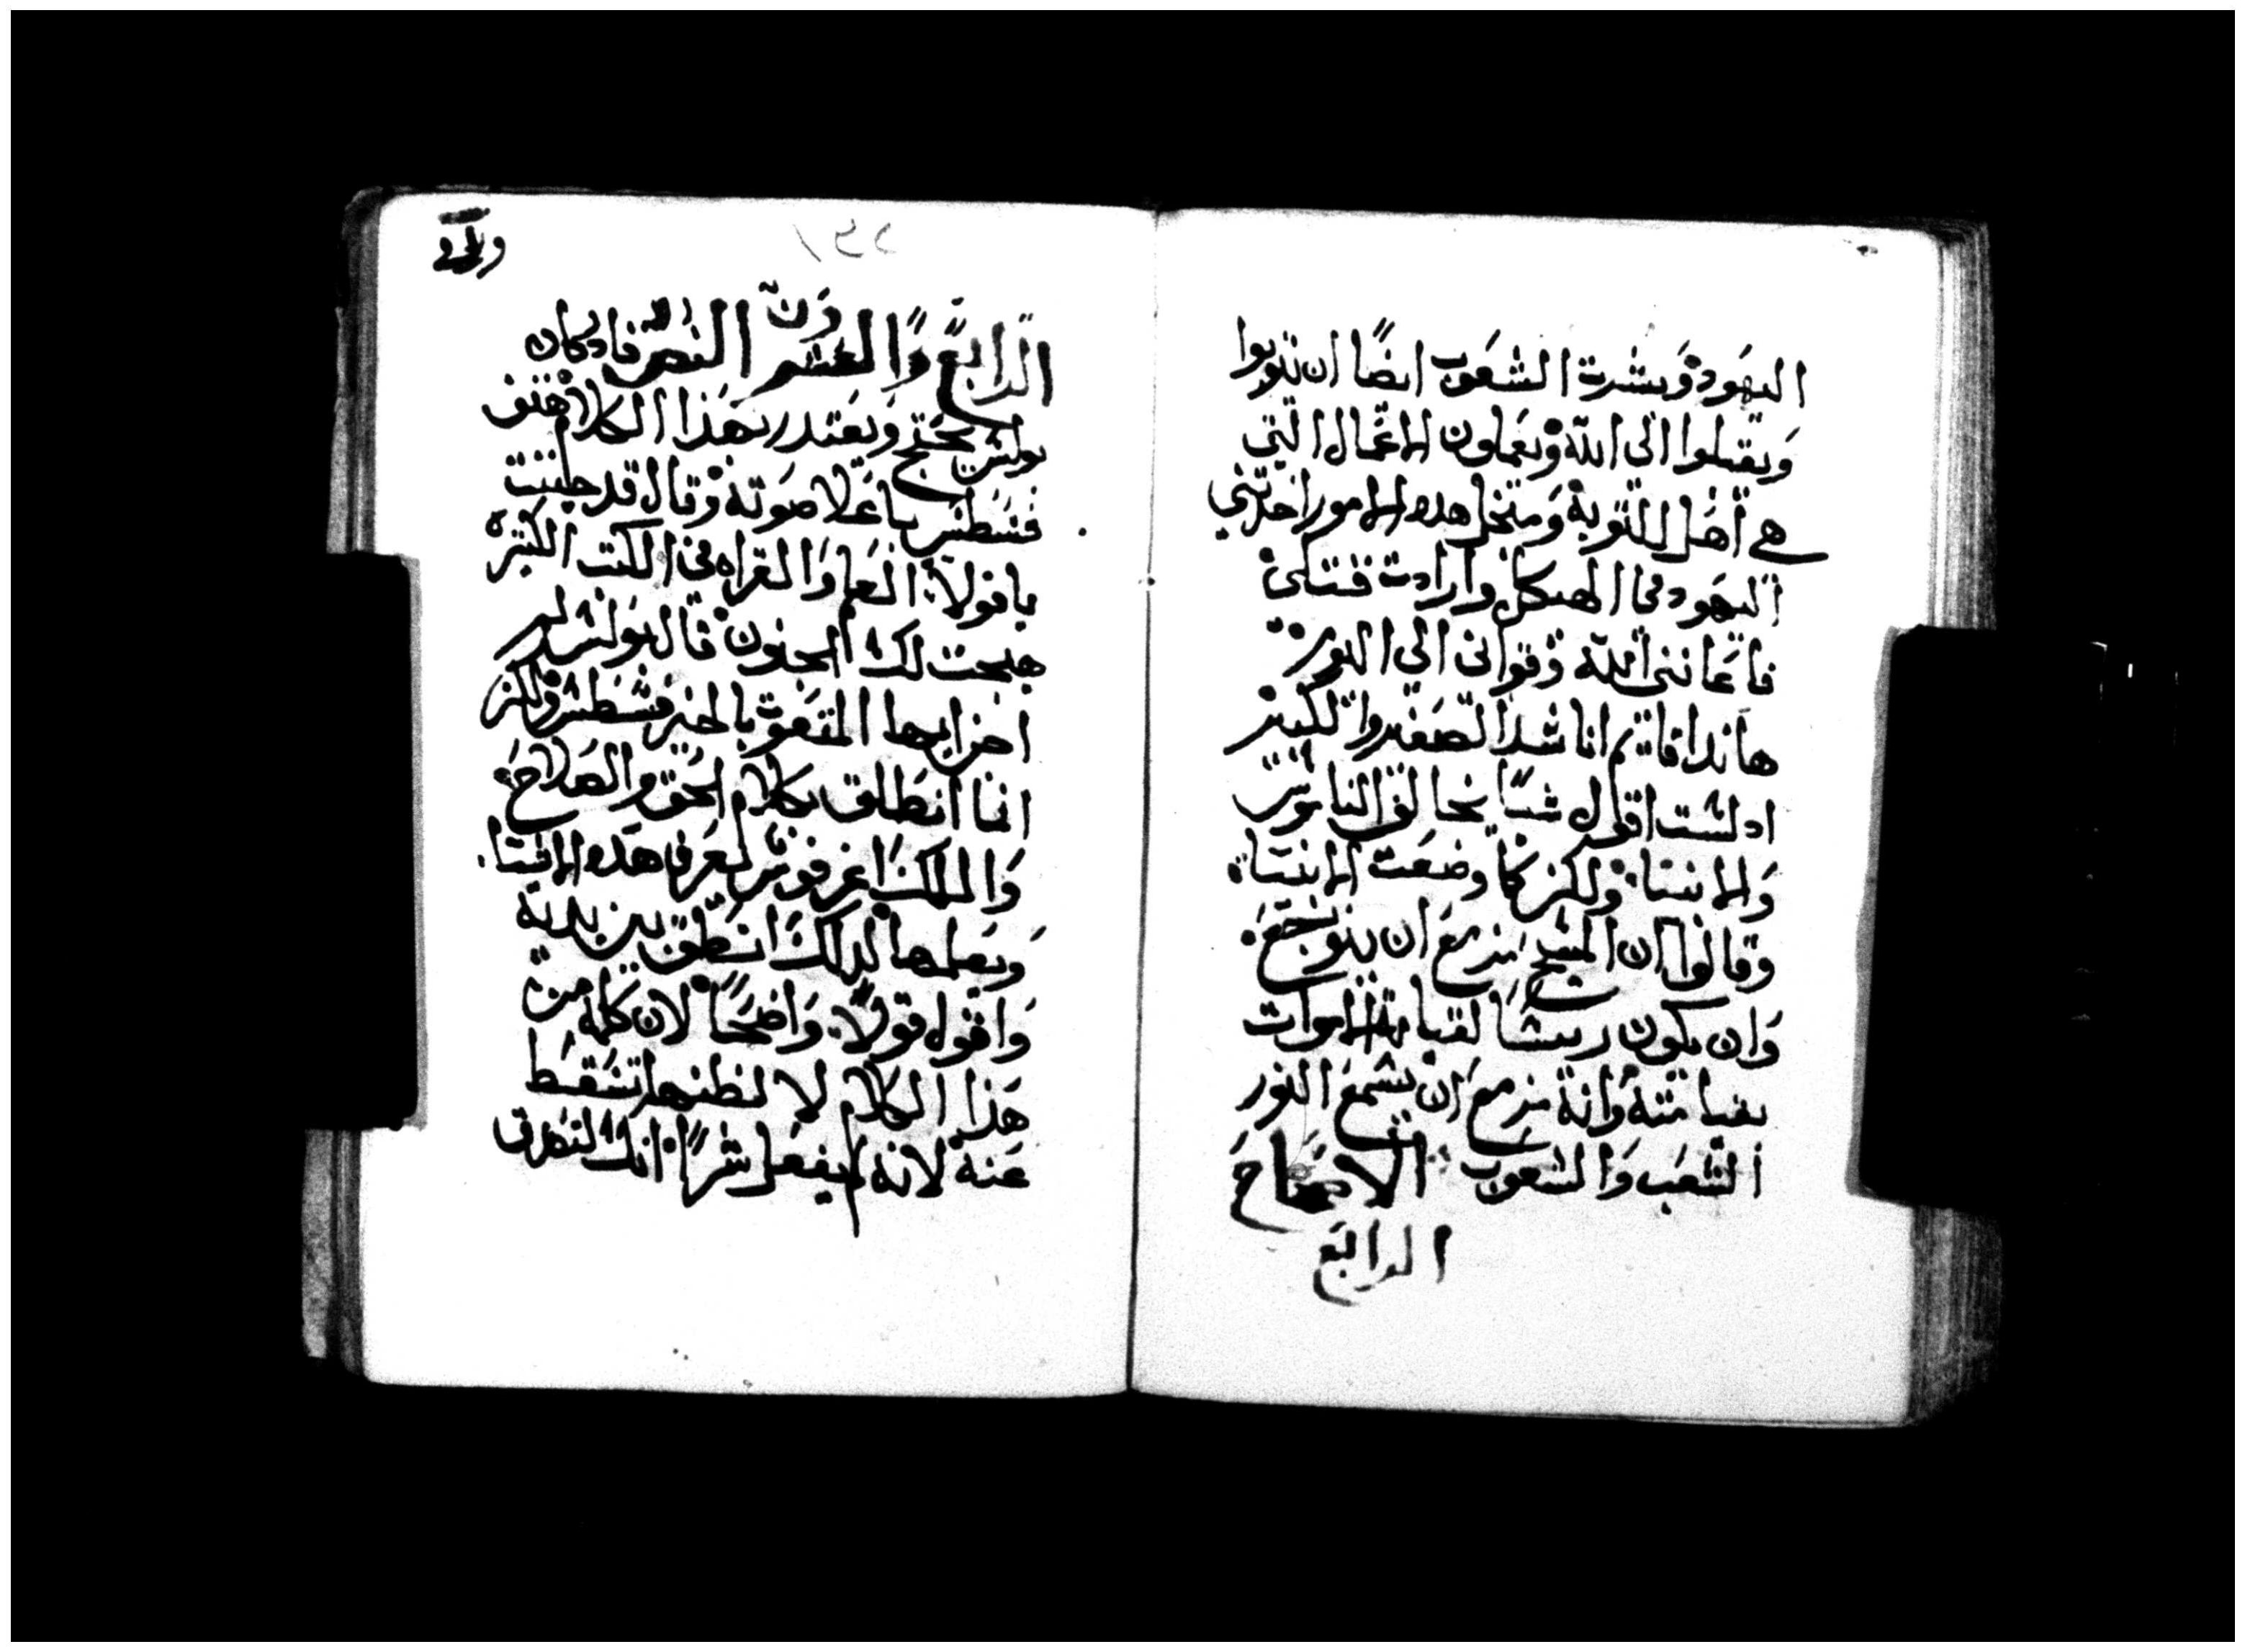 اليهود وبشرت الشعوب ايضًا ان يتوبوا
ويقبلوا الى الله ويعملون الاعمال التي
هي أهل للتوبة ومن اجل هذه الامور اخذتني
اليهود في الهيكل وارادت قتلى
فاعانني الله وقواني الى اليوم
هاندا قايم اناشد الصغير والكبير
اد لست اقول شيًا يخالف الناموس
والانبياء ولكن كما وضعت الانبياء
وقالوا ان المسيح مزمع ان يتوجع
وان يكون ريسًا لقيامة الاموات
بقيامته وانه مزمع ان يسمع النور
الشعب والشعوب الاصحاح
الرابع
الرابع والعشرون النص فاد كان
بولس يحتج ويعتدر بهذا الكلام هتف
فسطس باعلا صوته وقال قد جلبت
يا فولا العلم والقراه في الكتب الكتيره
هيجت لك الجنون قال بولس لم
اجن ايها المنعوت بالخير فسطس ولكن
انما انطلق بكلام الحق والصلاح
والملك اغرفوس يعرف هده الاشيا
ويعلمها لدلك انطق بين يديه
واقول قولًا واضحًا لان كلمه من
هذا الكلام لا نظنها تسقط
عنه لانه لم يفعل شرًا انك لتعرف